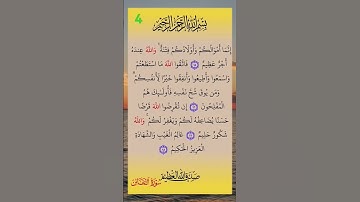 4
بسم الله الرحمن الرحيم
إِنَّمَا أَمْوَالُكُمْ وَأَوْلَادُكُمْ فِتْنَةٌ ۚ وَاللَّهُ عِندَهُ
أَجْرٌ عَظِيمٌ ⑮ فَاتَّقُوا اللَّهَ مَا اسْتَطَعْتُمْ
وَاسْمَعُوا وَأَطِيعُوا وَأَنفِقُوا خَيْرًا لِّأَنفُسِكُمْ ۗ
وَمَن يُوقَ شُحَّ نَفْسِهِ فَأُولَٰئِكَ هُمُ
الْمُفْلِحُونَ ⑯ إِن تُقْرِضُوا اللَّهَ قَرْضًا
حَسَنًا يُضَاعِفْهُ لَكُمْ وَيَغْفِرْ لَكُمْ ۚ وَاللَّهُ
شَكُورٌ حَلِيمٌ ⑰ عَالِمُ الْغَيْبِ وَالشَّهَادَةِ
الْعَزِيزُ الْحَكِيمُ ⑱
صدق الله العظيم
سورة التغابن